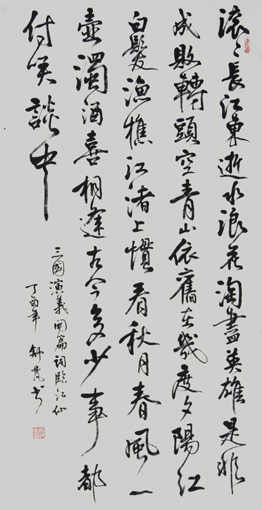 滚々长江东逝水浪花淘尽英雄是非
成败转頭空青山依舊在幾度夕陽红
白髮渔樵江渚上惯看秋月春風一
壶濁酒喜相逢古今多少事都
付笑談中
三國演義開篇词臨江仙
丁酉年